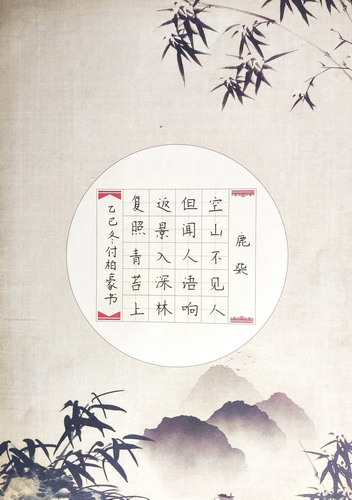 鹿柴
空山不见人
但闻人语响
返景入深林
复照青苔上
乙巳冬付柏豪书